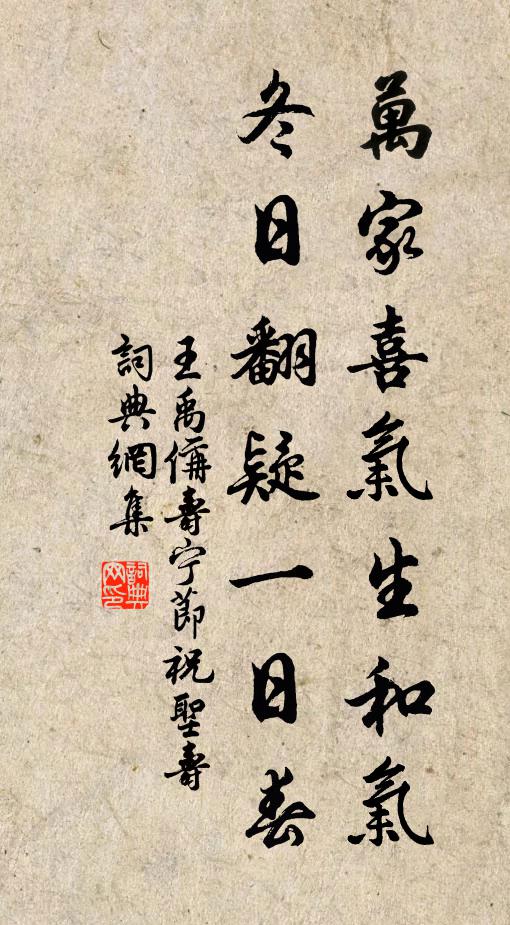 萬家喜氣生和氣
冬日翻疑一日春
王禹偁壽宁節祝聖壽
詞典網集
詞典
网印